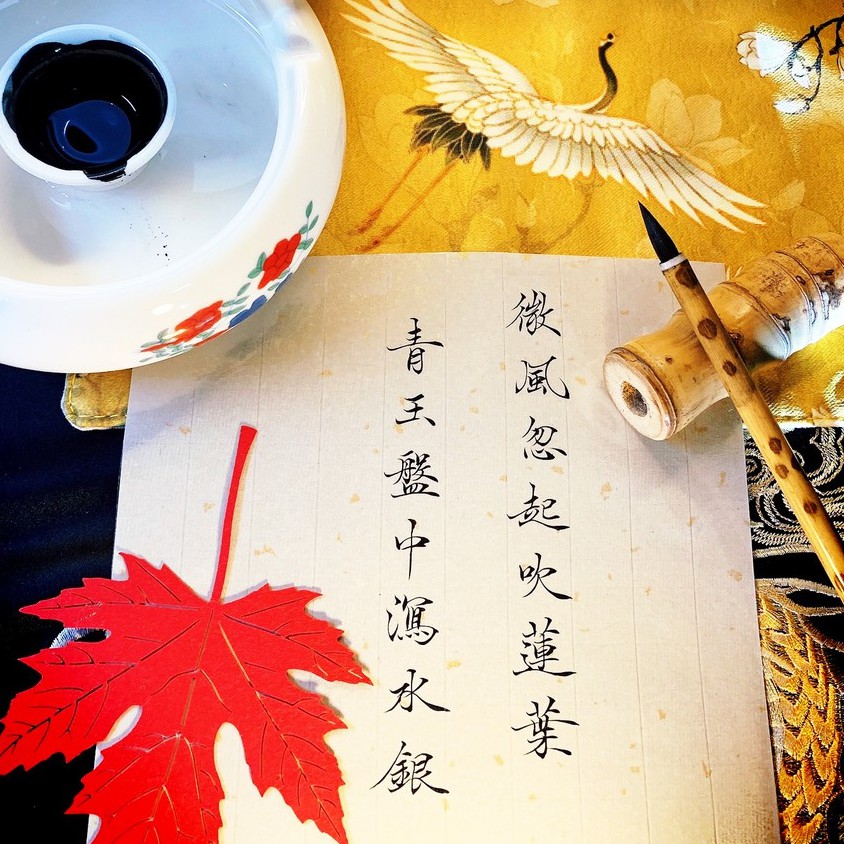 微風忽起吹蓮葉
青玉盤中瀉水銀